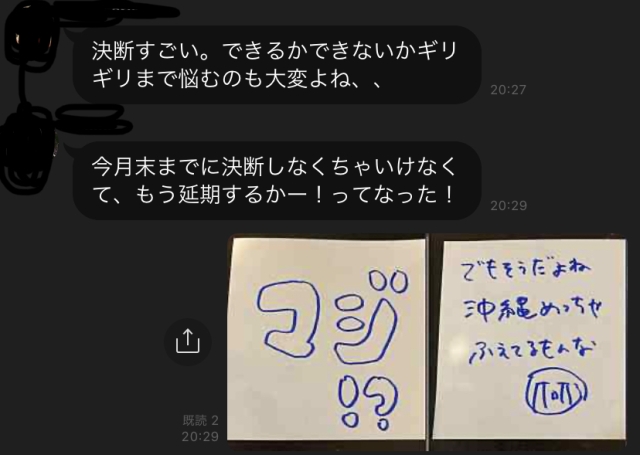 決断すごい。できるかできないかギリ
ギリまで悩むのも大変よね、、
20:27
今月末までに決断しなくちゃいけなく
て、もう延期するかー！ってなった！
20:29
マジ
!?
でもそうだよね
沖縄めっちゃ
ふえてるもんな
既読 2
20:29